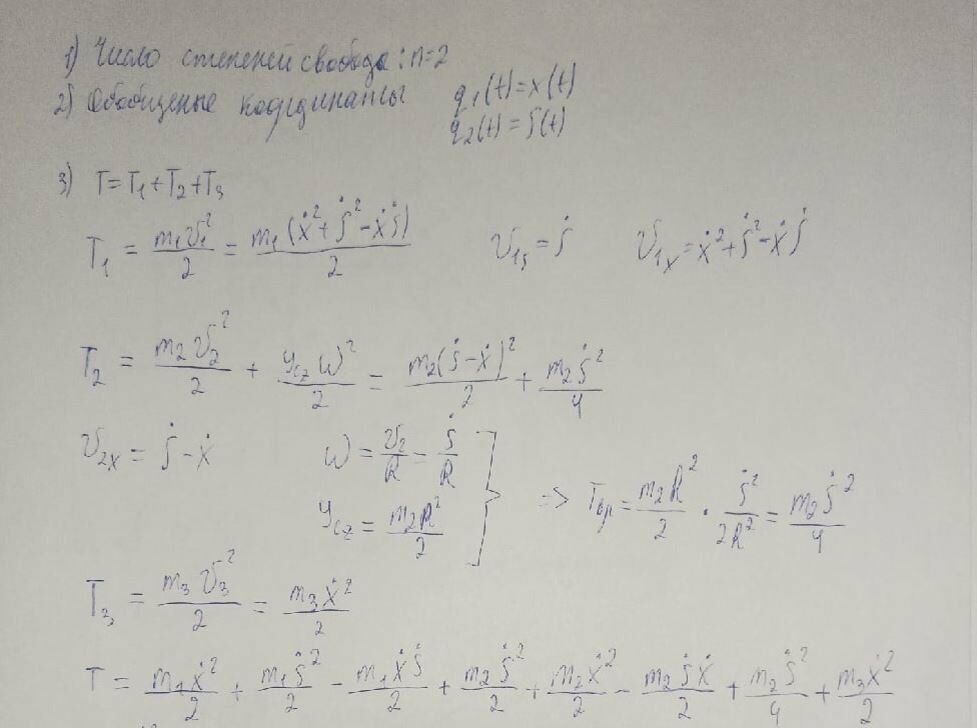 1) Число степеней свобода: n=2
2) Обобщеные координаты q₁(t)=x(t)
q₂(t)=S(t)
3) T=T₁+T₂+T₃
T₁ = m₁υ₁²/2 = m₁(ẋ²+Ṡ²-ẋṠ)/2 υ₁ₛ=Ṡ υ₁ₓ=ẋ²+Ṡ²-ẋṠ
T₂ = m₂υ₂²/2 + У_cz ω²/2 = m₂(Ṡ-ẋ)²/2 + m₂Ṡ²/4
υ₂ₓ = Ṡ-ẋ ω = υ₂/R = Ṡ/R
У_cz = m₂R²/2 } => T_вр = m₂R²/2 · Ṡ²/2R² = m₂Ṡ²/4
T₃ = m₃υ₃²/2 = m₃ẋ²/2
T = m₁ẋ²/2 + m₁Ṡ²/2 - m₁ẋṠ/2 + m₂Ṡ²/2 + m₂ẋ²/2 - m₂Ṡẋ/2 + m₂Ṡ²/4 + m₃ẋ²/2